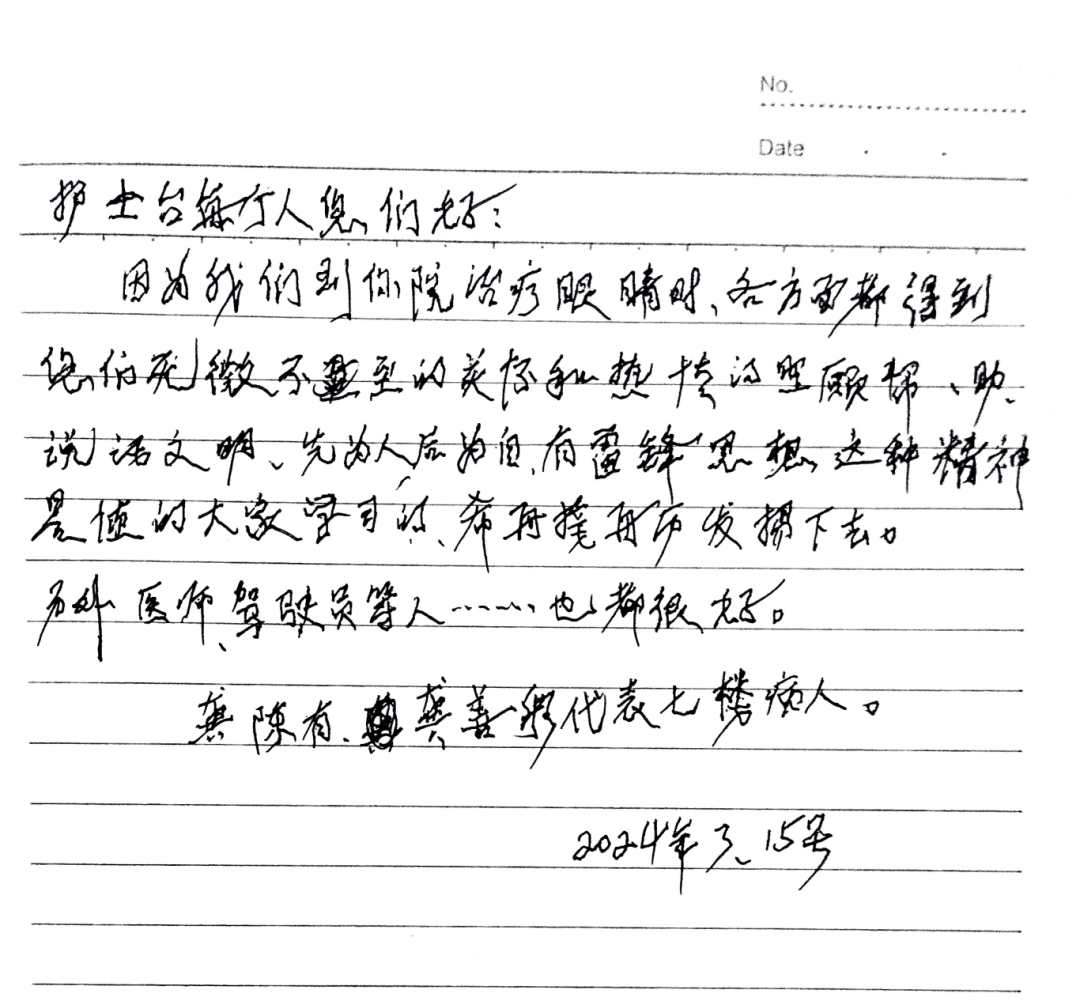 No.
Date
护士台每个人您们好：
因为我们到你院治疗眼睛时、各方面都得到
您们无微不至的关怀和热情的照顾帮、助、
说话文明、先为人后为自、有雷锋思想、这种精神
是值的大家学习的、希再接再历发揚下去。
医师、驾驶员等人……也都很好。
龚陈有、龚善 代表七楼病人。
2024年3、15号